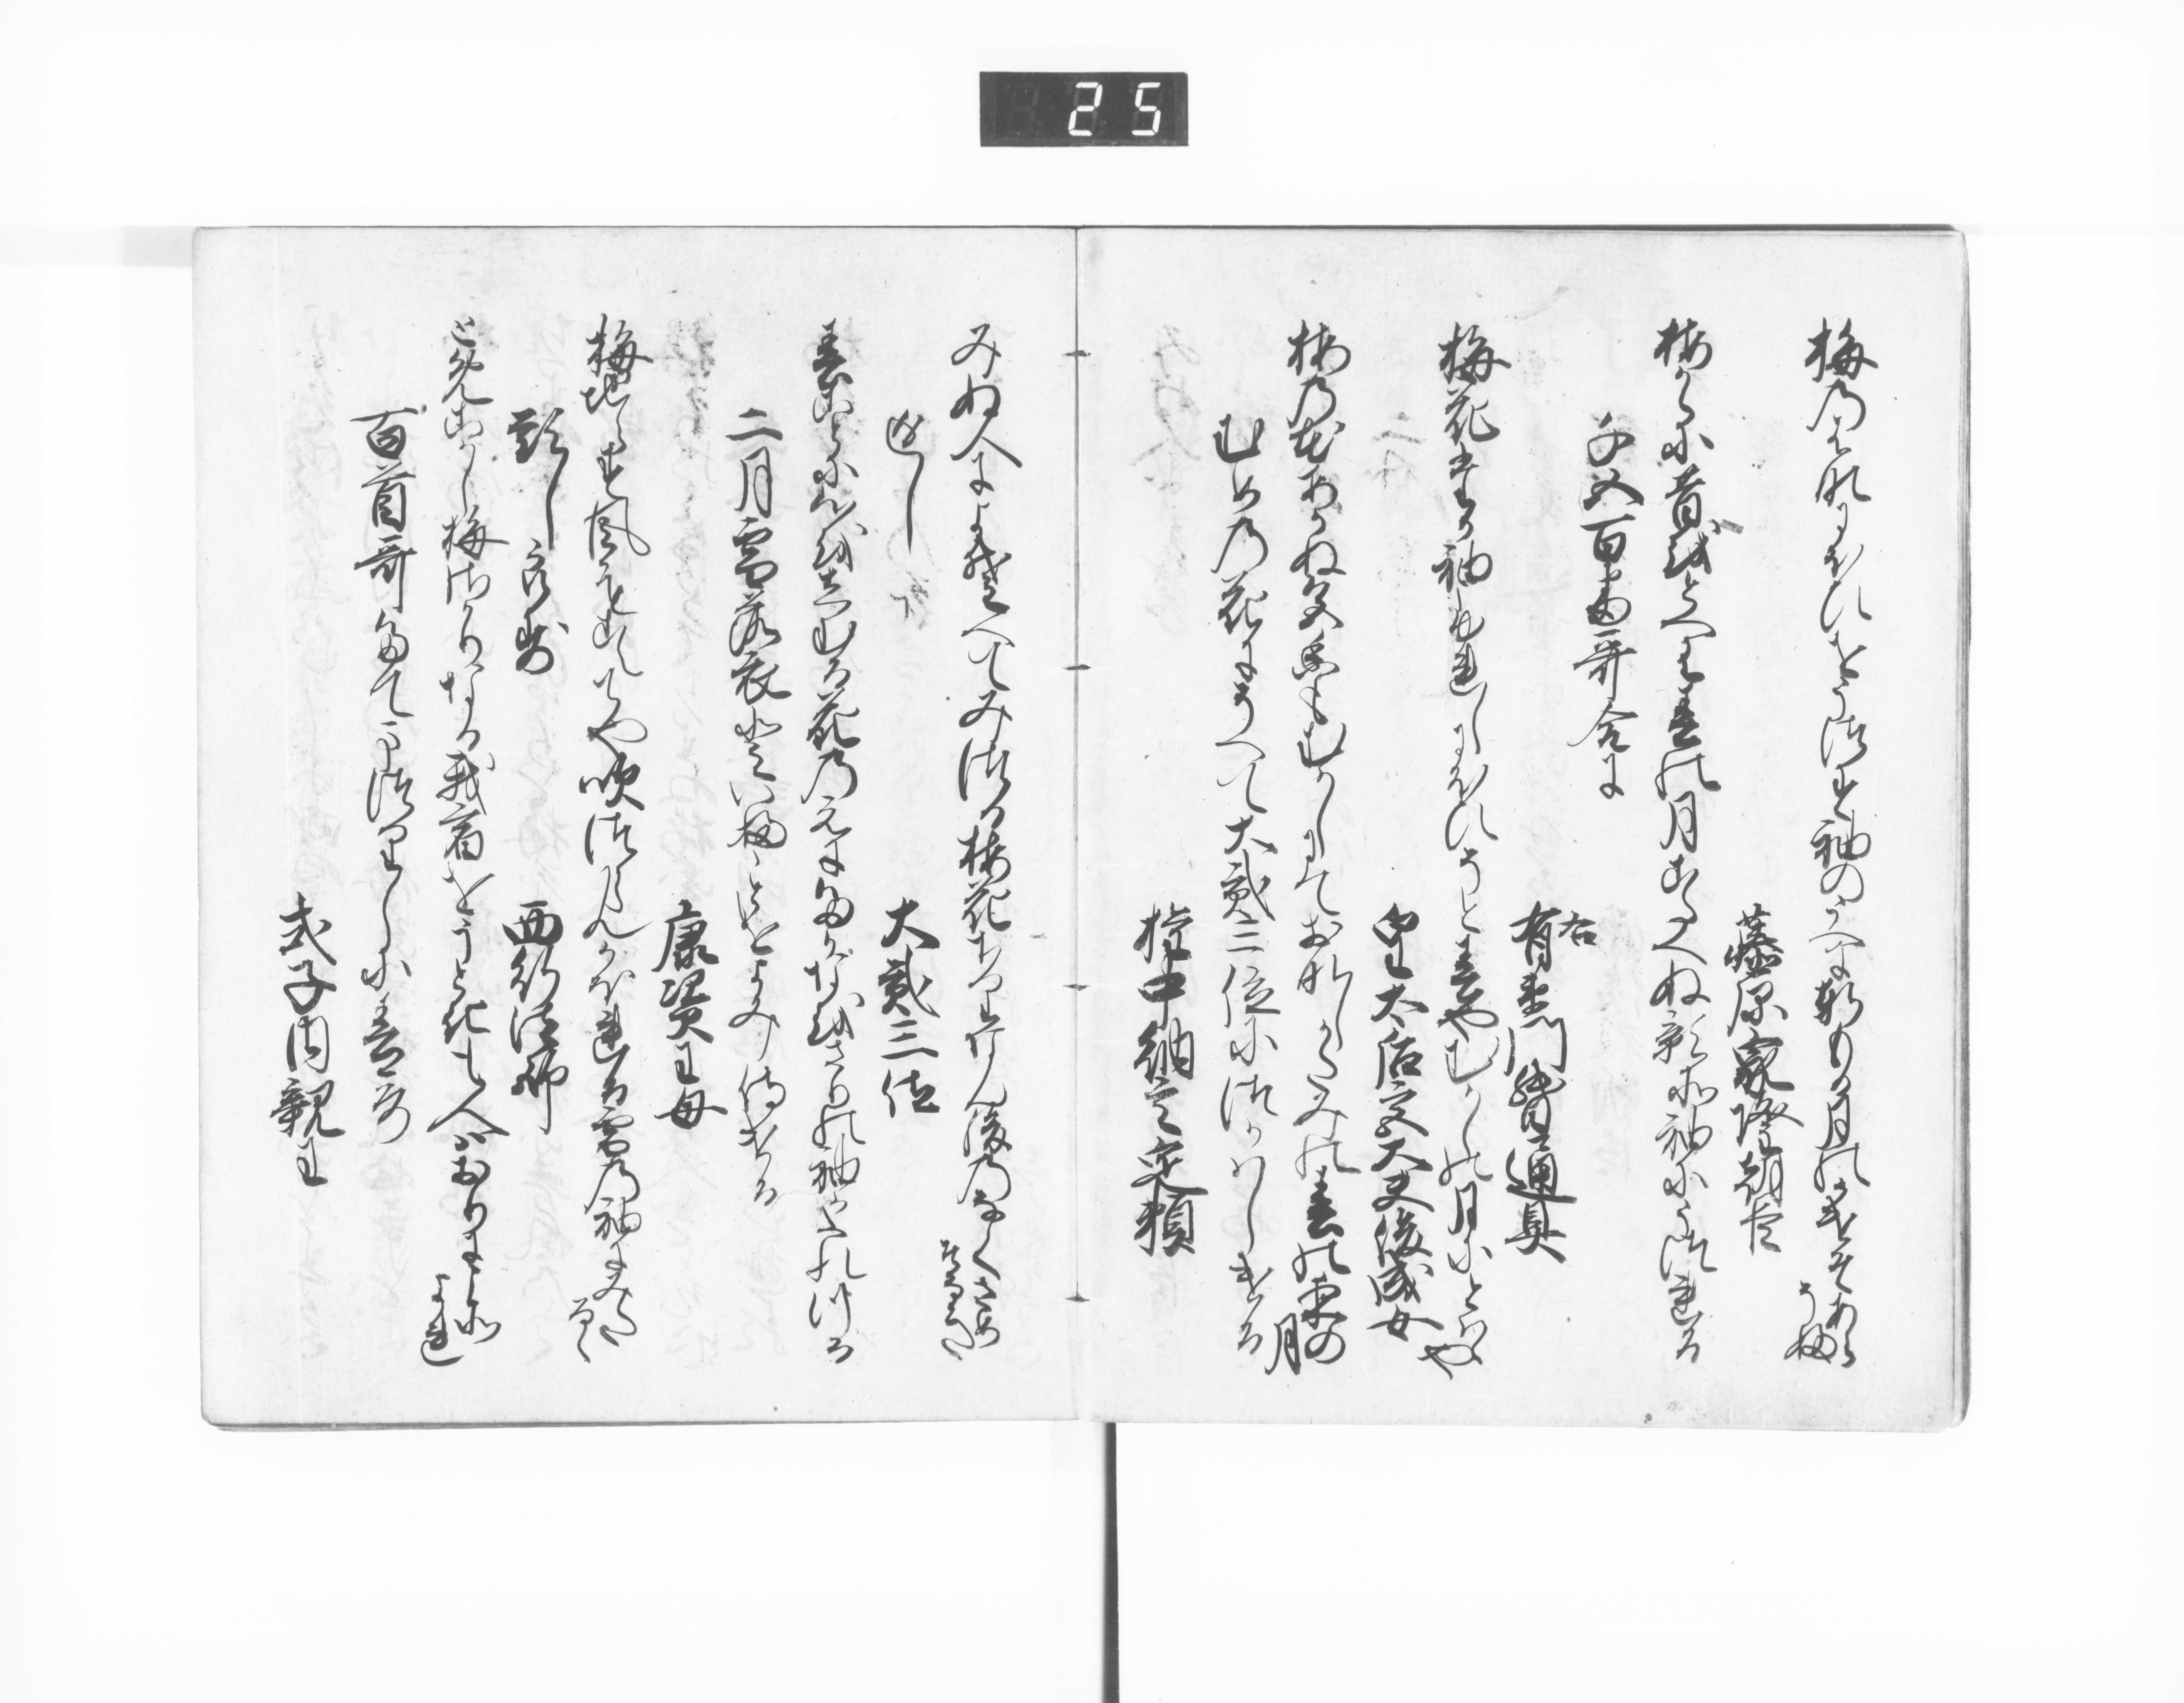 25
梅のはなにほひをうつす袖のうへに軒もる月のかけそあら
そふ
藤原家隆朝臣
梅かゝに昔をとへは春の月こたへぬ影そ袖にうつれる
千五百番哥合に
右
有衛門督通具
梅花たか袖ふれしにほひそと春やむかしの月にとはゝや
皇太后宮大夫俊成女
梅の花あかぬ色香もむかしにておなしかたみの春の夜の
月
むめの花にそへて大貳三位につかはしける
権中納言定頼
みぬ人によそへてみつる梅花ちりなん後のなくさめ
そなき
返し
大貳三位
春ことに心をしむる花のえにたかなをさりの袖かふれつる
二月雪落衣といふことをよみ侍ける
康資王母
梅ちらす風もこえてや吹つらんかほれる雪の袖にみた
るゝ
題しらす
西行法師
とめこかし梅さかりなる我宿をうときも人はおりにこそ
よれ
百首哥たてまつりしに春哥
式子内親王